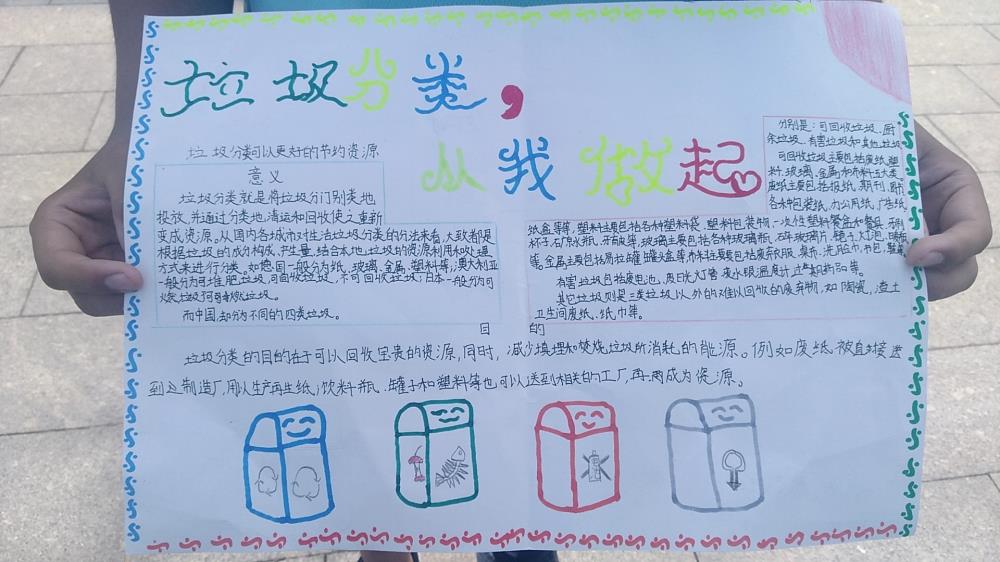 垃圾分类,
从我做起
垃圾分类可以更好的节约资源
意义
垃圾分类就是将垃圾分门别类地
投放,并通过分类地清运和回收使之重新
变成资源。从国内各城市对生活垃圾分类的方法来看,大致都是
根据垃圾的成分构成,产生量,结合本地垃圾的资源利用和处理
方式来进行分类。如德国一般分为纸、玻璃、金属、塑料等;澳大利亚
一般分为可堆肥垃圾,可回收垃圾,不可回收垃圾;日本一般分为可
燃垃圾,不可燃垃圾。
而中国,却分为不同的四类垃圾。
分别是:可回收垃圾、厨
余垃圾、有害垃圾和其他垃圾
可回收垃圾主要包括废纸,塑
料,玻璃,金属和布料五大类
废纸主要包括报纸,期刊,图书
各种包装纸,办公用纸,广告纸
纸盒等等,塑料主要包括各种塑料袋,塑料包装物,一次性塑料餐盒和餐具,牙刷
杯子,矿泉水瓶,牙膏皮等,玻璃主要包括各种玻璃瓶,碎玻璃片,镜子,灯泡,暖瓶
等。金属主要包括易拉罐,罐头盒等,布料主要包括废弃衣服,桌布,洗脸巾,书包,鞋等
有害垃圾包括废电池,废日光灯管,废水银温度计,过期药品等。
其它垃圾则是三类垃圾以外的难以回收的废弃物,如陶瓷,渣土
卫生间废纸、纸巾等。
目的
垃圾分类的目的在于可以回收宝贵的资源,同时,减少填埋和焚烧垃圾所消耗的能源。例如废纸被直接送
到造制造厂,用以生产再生纸;饮料瓶、罐子和塑料等也可以送到相关的工厂,再成为资源。